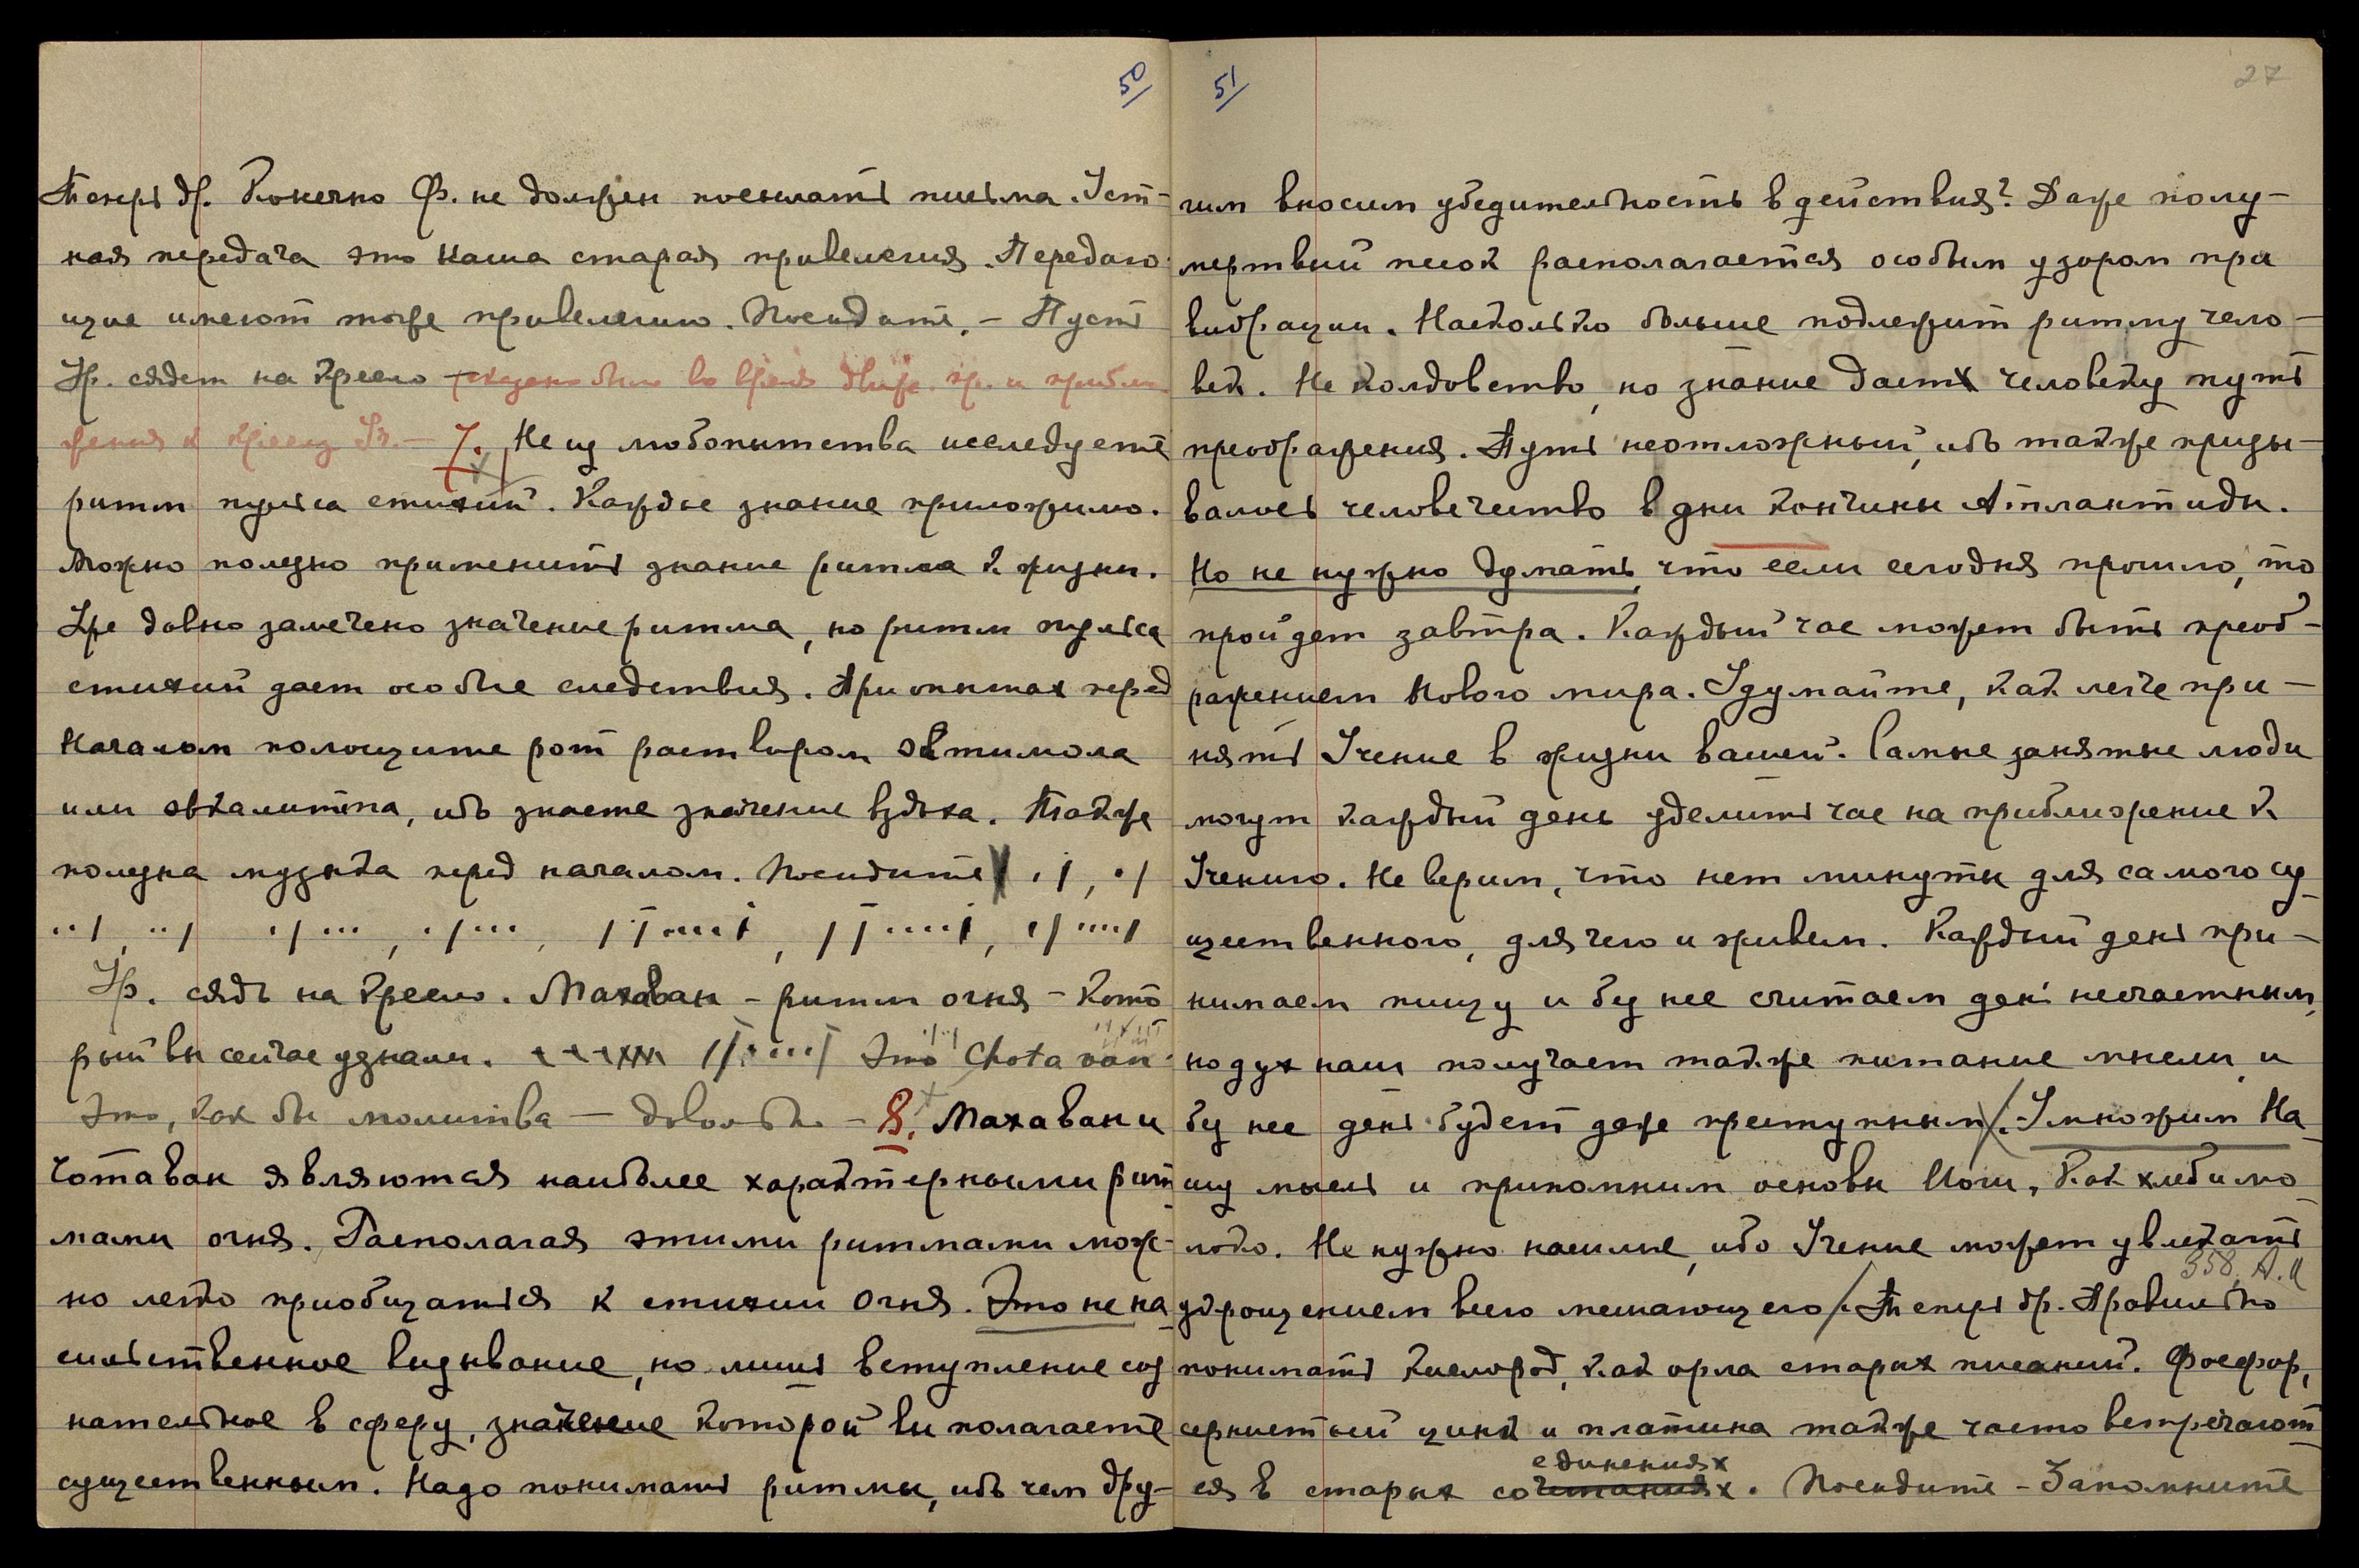 50
Теперь др. Конечно Ф. не должен посылать письма. Уст-
ная передача это Наша старая привелегия. Передаю-
щие имеют тоже привелегию. Посидите. – Пусть
Ур. сядет на кресло – сказано было во время движ. кр. и прибли
жения к креслу Ур. – 7. Не из любопытства исследуете
ритм пульса стихий. Каждое знание приложимо.
Можно полезно применить знание ритма к жизни.
Уже давно замечено значение ритма, но ритм пульса
стихий дает особые следствия. При опытах перед
Началом полощите рот раствором эвтимола
или эвкалипта, ибо знаете значение вздоха. Также
полезна музыка перед началом. Посидите
Ур. сядь на кресло. Махаван – ритм огня – кото
рый вы сейчас узнали. Это Chota van.
Это, как бы молитва – – 8. Махаван и
Чотаван являются наиболее характерными рит
мами огня. Располагая этими ритмами мож-
но легко приобщаться к стихии Огня. Это не на
сильственное вызывание, но лишь вступление соз
нательное в сферу, значение которой вы полагаете
существенным. Надо понимать ритмы, ибо чем дру-
51
27
гим вносим убедительность в действия? Даже полу-
мертвый песок располагается особым узором при
вибрации. Насколько больше подлежит ритму чело-
век. Не колдовство, но знание дает человеку путь
преображения. Путь неотложный, ибо также призы-
валось человечество в дни кончины Атлантиды.
Но не нужно думать, что если сегодня прошло, то
пройдет завтра. Каждый час может быть преоб-
ражением Нового мира. Удумайте, как легче при-
нять Учение в жизни вашей. Самые занятые люди
могут каждый день уделить час на приближение к
Учению. Не верим, что нет минуты для самого су
щественного, для чего и живем. Каждый день при-
нимаем пищу и без нее считаем день несчастным,
но дух наш получает также питание мысли, и
без нее день будет даже преступным. Умножим На
шу мысль и припомним основы Йоги, как хлеб и мо
локо. Не нужно насилие, ибо Учение может увлекать
358. А.Й
упрощением всего мешающего. Теперь др. Правильно
понимать кислород, как орла старых писаний. Фосфор,
сернистый цинк и платина также часто встречают
единениях
ся в старых сочетаниях. Посидите – Запомните